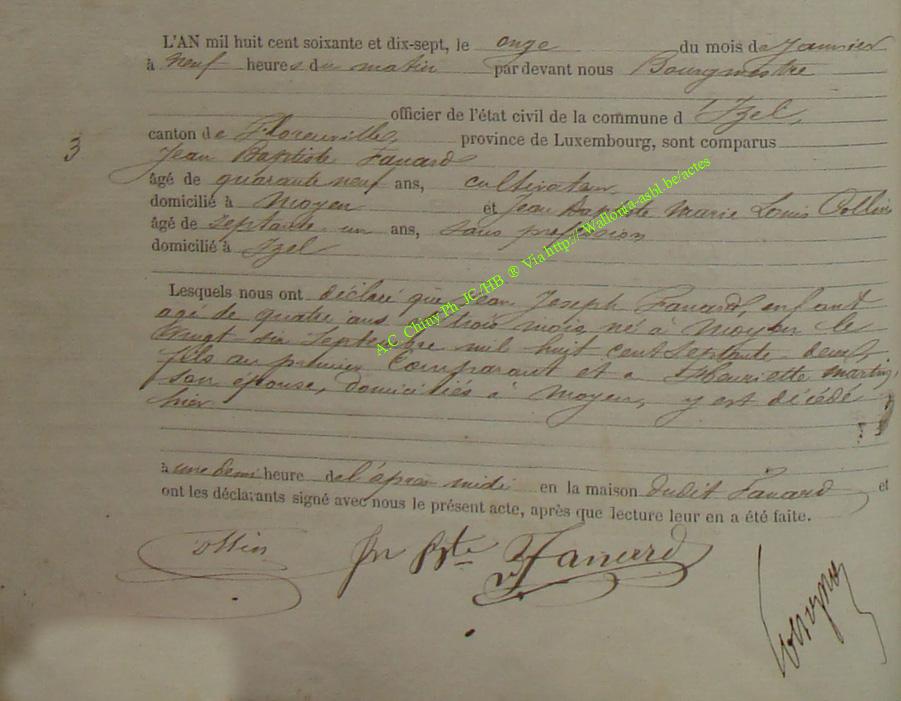 L'AN mil huit cent soixante et dix-sept, le onze du mois de Janvier
à neuf heures du matin par devant nous Bourgmestre
officier de l'état civil de la commune d'Izel,
canton de Florenville, province de Luxembourg, sont comparus
3
Jean Baptiste Fanard
âgé de quarante neuf ans, cultivateur
domicilié à Moyen et Jean Baptiste Marie Louis Ollin
âgé de septante un ans, sans profession
domicilié à Izel
Lesquels nous ont déclaré que Jean Joseph Fanard, enfant
agé de quatre ans et trois mois né à Moyen le
vingt six Septembre mil huit cent septante-deux,
fils au premier Comparant et a Henriette Martin,
son épouse, domiciliés à Moyen, y est décédé
hier
à une demi heure de l'après midi en la maison dudit Fanard et
ont les déclarants signé avec nous le présent acte, après que lecture leur en a été faite.
Ollin Jn Bte Fanard
A.C. Chiny Ph JC/HB ® Via http://Wallonia-asbl.be/actes